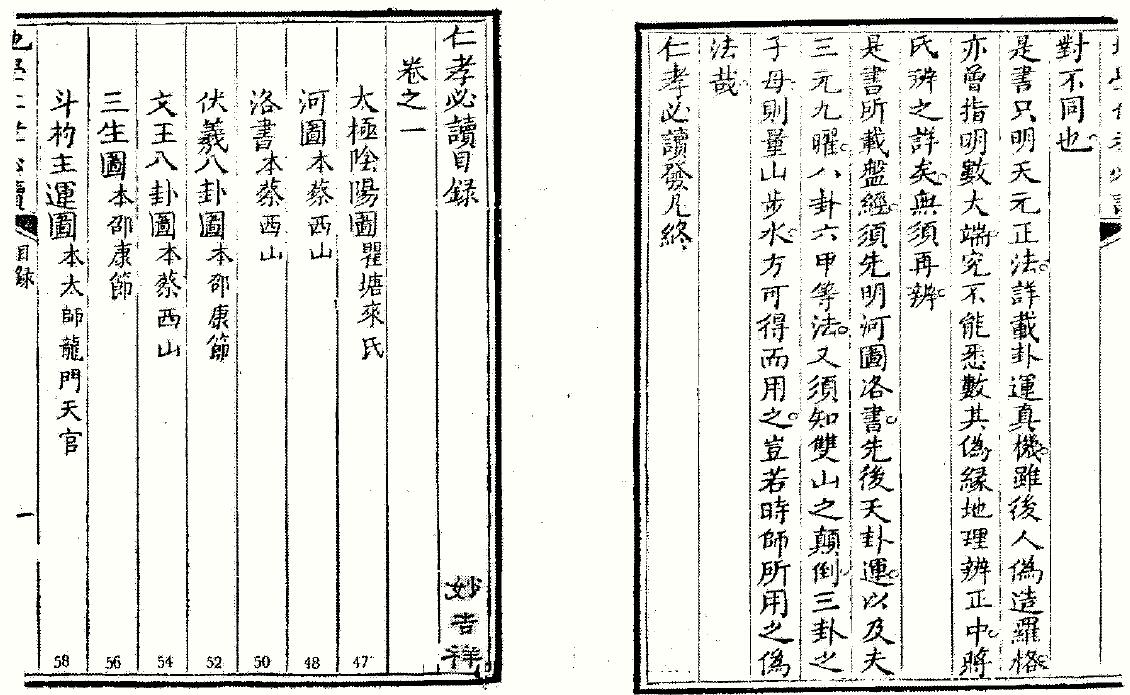 對不同也
是書只明天元正法詳載卦運真機雖後人偽造羅格
亦曾指明數大端究不能悉數其偽緣地理辨正中蔣
氏辨之詳矣無須再辨
是書所載盤經須先明河圖洛書先後天卦運以及夫
三元九曜八卦六甲等法又須知雙山之顛倒三卦之
子母則量山步水方可得而用之豈若時師所用之偽
法哉
仁孝必讀發凡終
仁孝必讀目錄
妙吉祥
卷之一
太極陰陽圖瞿塘來氏 47
河圖本蔡西山 48
洛書本蔡西山 50
伏羲八卦圖本邵康節 52
文王八卦圖本蔡西山 54
三生圖本邵康節 56
斗杓主運圖本太師龍門天官 58
目錄
一